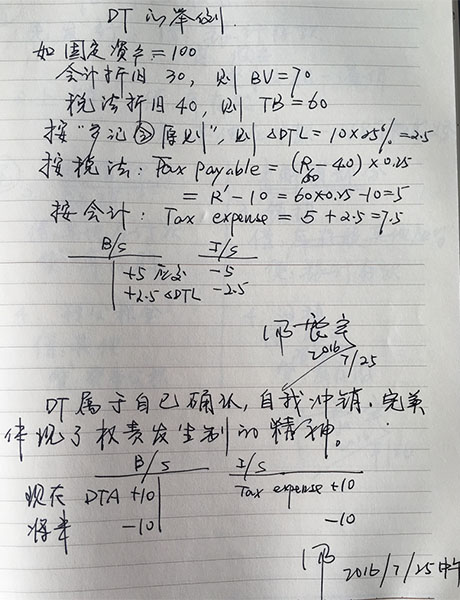 DT的举例.
如固定资产=100
会计折旧 30, 则 BV=70
税法折旧 40, 则 TB=60
按"原则", 则 ΔDTL=10×25%=2.5
按税法: Tax payable = (R-40)×0.25
100
= R'-10 = 60×0.25-10=5
按会计: Tax expense = 5+2.5=7.5
B/S I/S
+5 应交 -5
+2.5 ΔDTL -2.5
2016
7/25
DT属于自己确认,自我冲销.完美
体现了权责发生制的精神。
B/S I/S
现在 DTA +10 Tax expense +10
将来 -10 -10
2016/7/25 中午